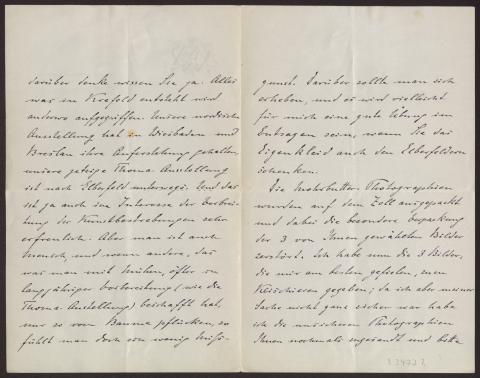 darüber denke wissen Sie ja. Alles
was in Krefeld entsteht wird
anderswo aufgegriffen. Unsere nordische
Ausstellung hat in Wiesbaden und
Breslau ihre Auferstehung gehalten,
unsere jetzige Thoma Ausstellung
ist nach Elberfeld unterwegs. Und das
ist ja auch im Interesse der Verbrei-
tung der Kunstbestrebungen sehr
erfreulich. Aber man ist auch
Mensch, und wenn andere, das
was man mit Mühen, öfter in
langjähriger Vorbereitung (wie die
Thoma Ausstellung) beschafft hat,
nur so vom Baume pflücken, so
fühlt man doch ein wenig Miss-
gunst. Darüber sollte man sich
erheben, und es wird vielleicht
für mich eine gute Übung im
Entsagen sein, wenn Sie das
Eigenkleid auch den Elberfeldern
schenken.
Die Photographien
wurden auf dem Zoll ausgepackt
und dabei die besondere Verpackung
der 3 von Ihnen gewählten Bilder
zerstört. Ich habe nun die 3 Bilder,
die mir am besten gefielen, zum
Klischieren gegeben; da ich aber meiner
Sache nicht ganz sicher war habe
ich die unsicheren Photographien
Ihnen nochmals zugesandt und bitte